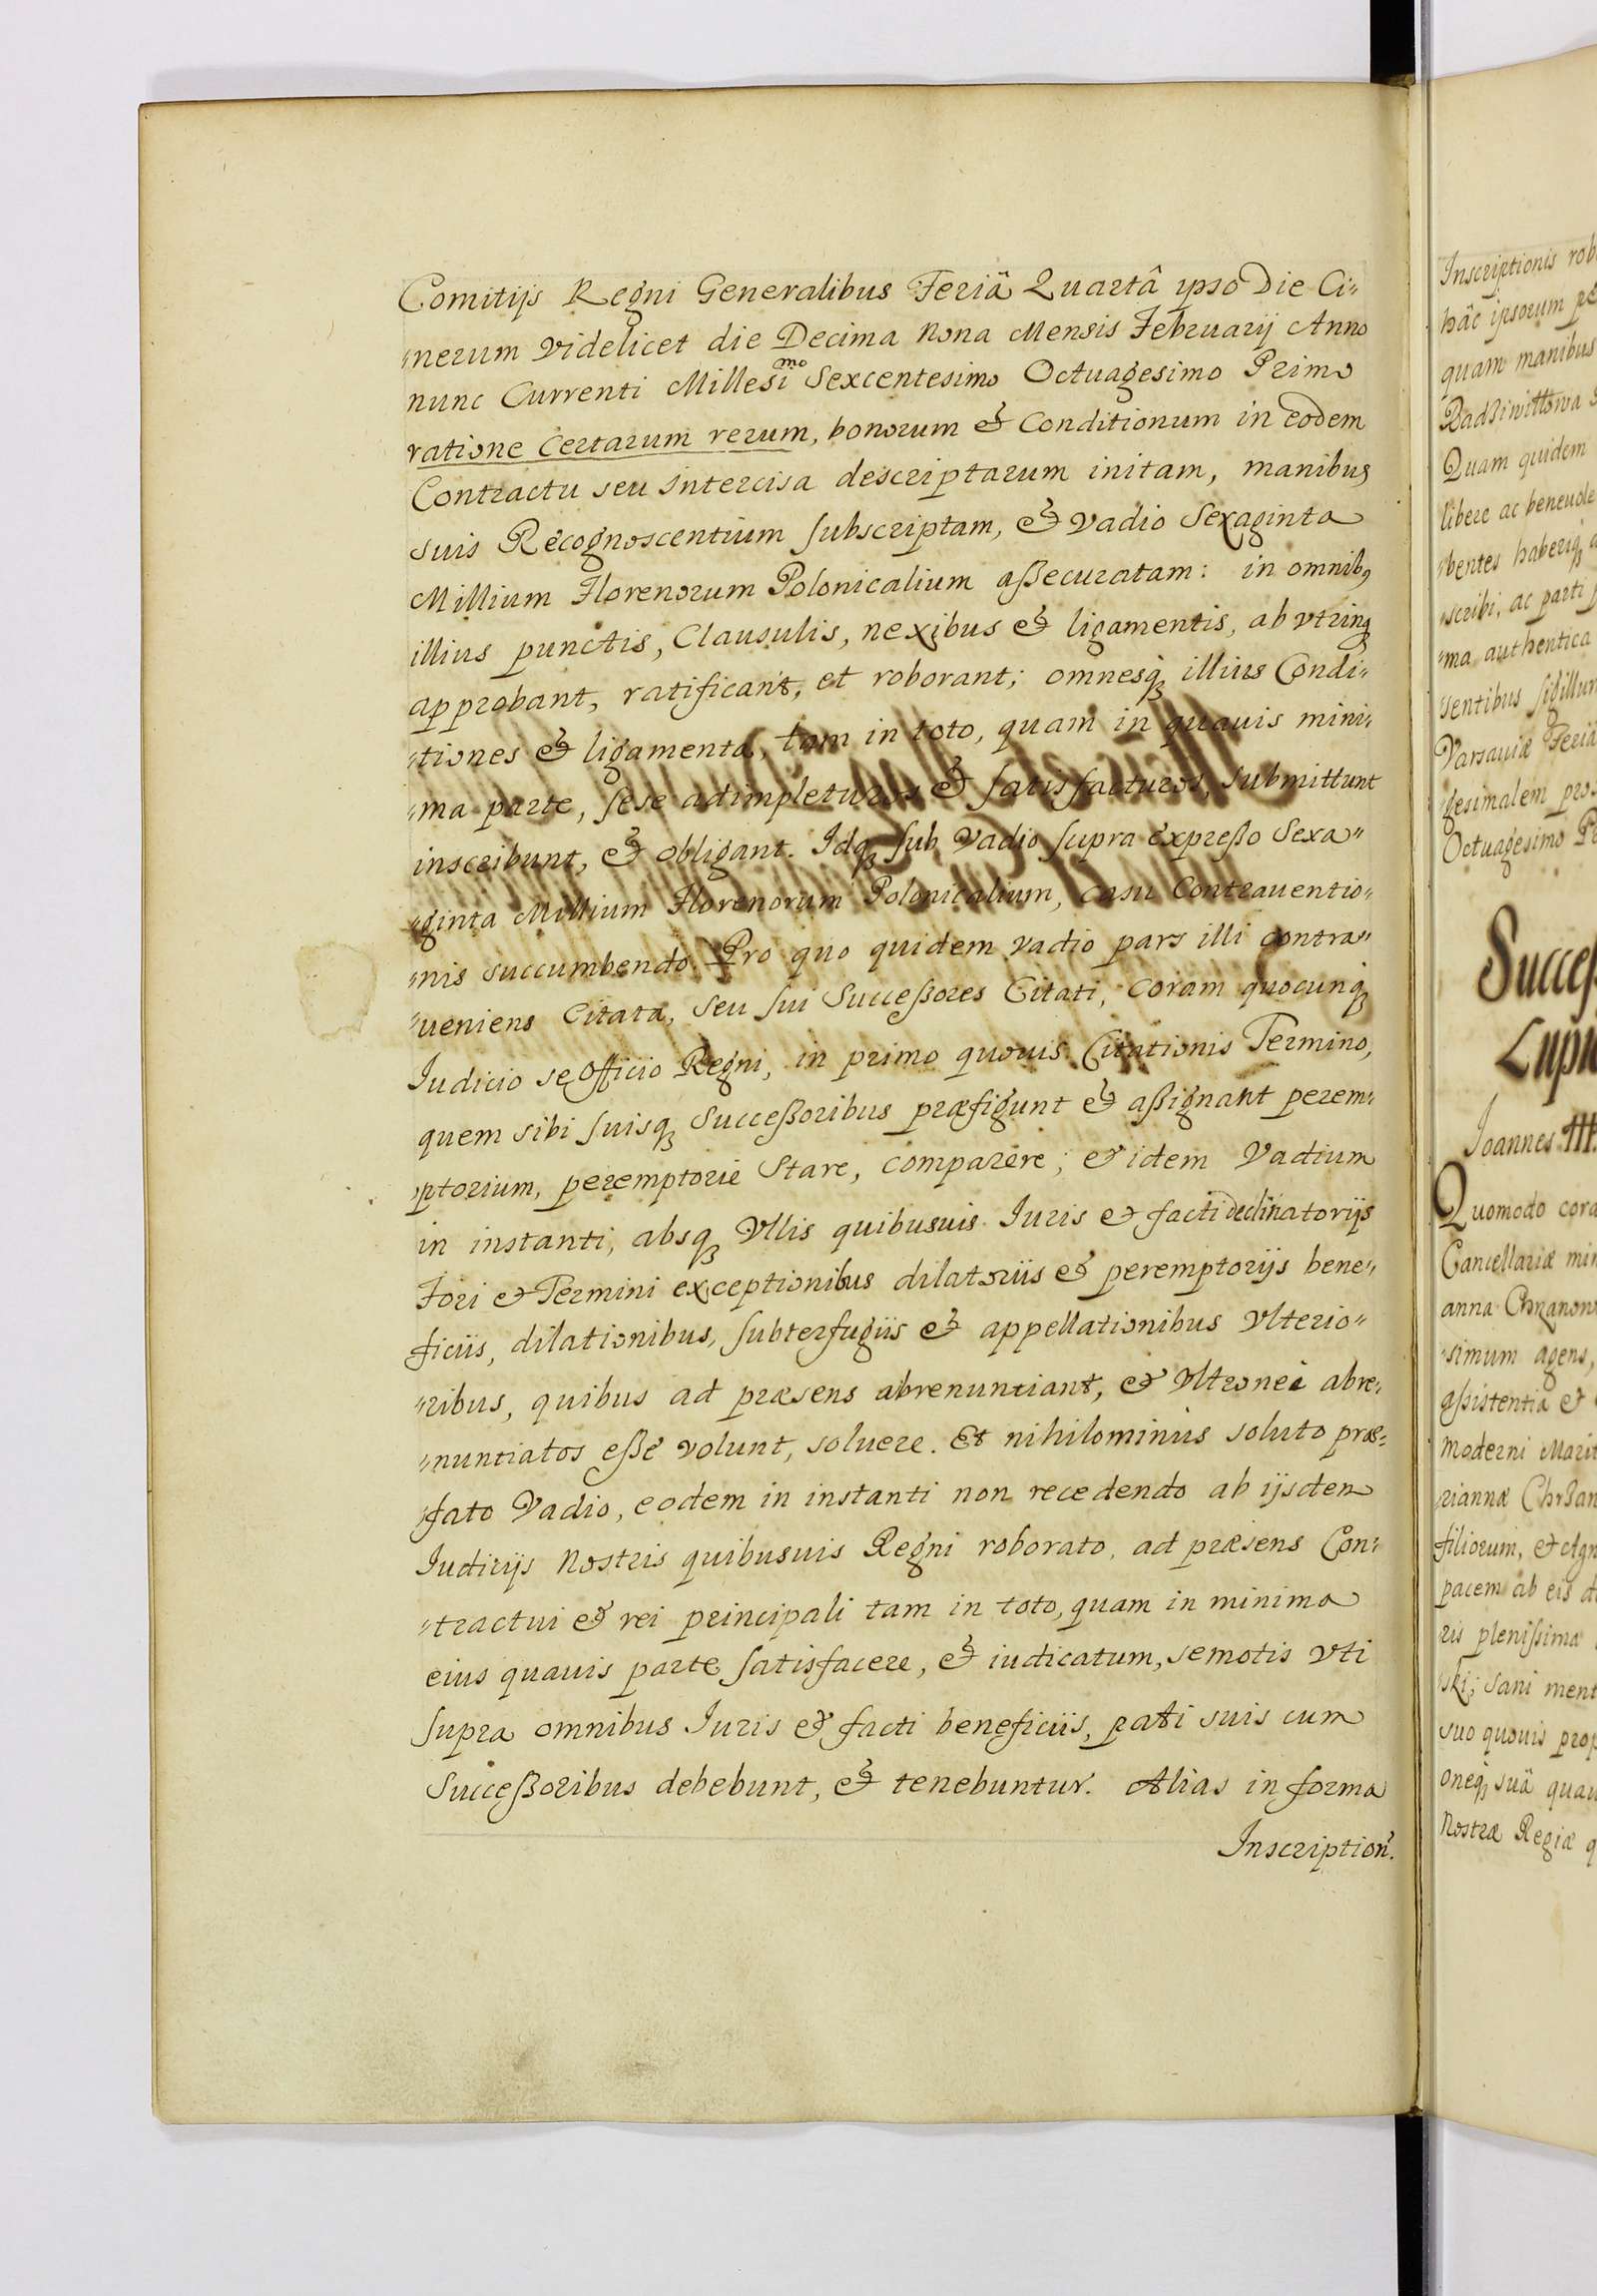 Comitijs Regni Generalibus Feriâ Quartâ ypso Die Ci„
„nerum videlicet die Decima nona Mensis Februarij Anno
nunc Currenti Millesimo Sexcentesimo Octuagesimo Primo
ratione certarum rerum, bonorum & Conditionum in eodem
Contractu seu Intercisa descriptarum initam, manibus
suis Recognoscentium subscriptam, & vadio Sexaginta
Millium Florenorum Polonicalium aßecuratam: in omnibq
illius punctis, Clausulis, nexibus & ligamentis, ab vtrinq
approbant, ratificant, et roborant; omnesq illius Condi„
„tiones & ligamenta, tam in toto, quam in quauis mini„
„ma parte, sese adimpleturos & satisfacturos, submittunt
inscribunt, & obligant. Idq sub vadio supra expreßo Sexa„
„ginta Millium Florenorum Polonicalium, casu Contrauentio„
„nis succumbendo. Pro quo quidem vadio pars illi contra„
„ueniens Citata, seu sui Succeßores Citati, coram quocunq
Iudicio se Officio Regni, in primo quouis Citationis Termino,
quem sibi suisq Succeßoribus præfigunt & aßignant perem„
„ptorium, peremptorie Stare, comparere; & idem Vadium
in instanti, absq Vllis quibusuis Iuris & facti declinatorijs
Fori & Termini exceptionibus dilatoriis & peremptorijs bene„
ficiis, dilationibus, subterfugiis & appellationibus Vlterio„
„ribus, quibus ad præsens abrenuntiant, & Vltronei abre„
„nuntiatos eße volunt, soluere. Et nihilominus soluto præ„
„fato Vadio, eodem in instanti non recedendo ab ijsdem
Iudicijs Nostris quibusuis Regni roborato, ad præsens Con„
„tractui & rei principali tam in toto, quam in minima
eius quauis parte satisfacere, & iudicatum, semotis vti
supra omnibus Iuris & facti beneficiis, pati suis cum
Succeßoribus debebunt, & tenebuntur. Alias in forma
Inscription.
Inscriptionis rob
hâc ipsorum
quam manibus
Quam quidem
libere ac beneuole
„bentes haberiq
„scribi, ac parti
„ma authentica
„sentibus sigillum
Varsauiæ Feriâ
„gesimalem
Octuagesimo
Succeß
Joannes III.
Quomodo cora
Cancellariæ min
anna Chrzanow
„simum agens,
aßistentia &
moderni Marit
riannæ Chrzan
filiorum, &
pacem ab eis
ris plenißima
„ski, sani ment
suo quouis prop
oneq suâ quau
Nostræ Regiæ q